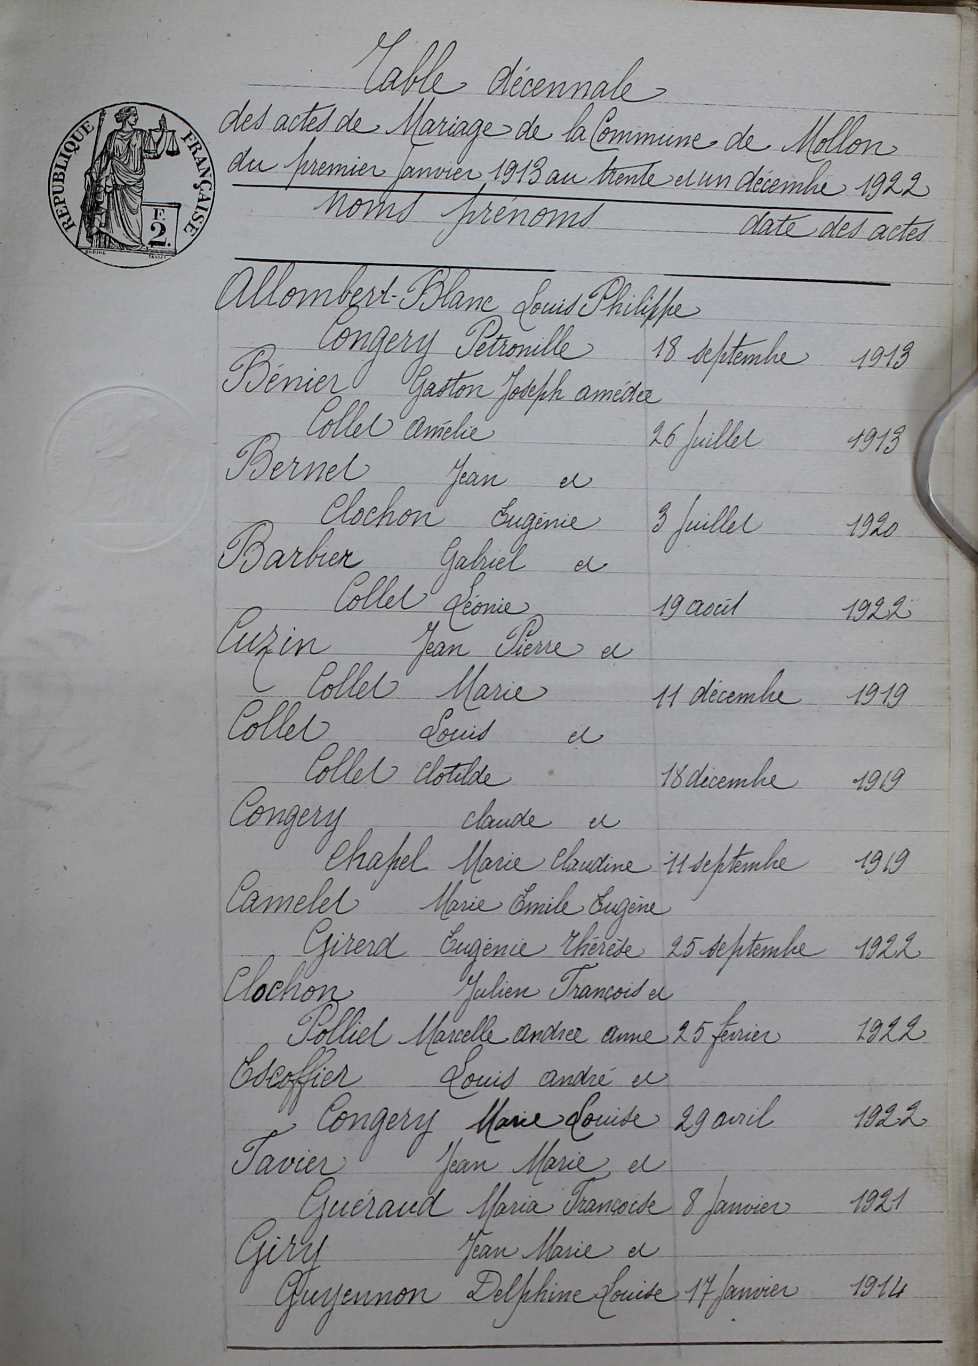 Table décennale
des actes de Mariage de la Commune de Mollon
du premier Janvier 1913 au trente et un décembre 1922
RÉPUBLIQUE FRANÇAISE
F.
2.
noms prénoms date des actes
Allombert-Blanc Louis Philippe
Congery Pétronille 18 septembre 1913
Bénier Gaston Joseph amédée
Collet amélie 26 Juillet 1913
Bernet Jean et
Clochon Eugénie 3 Juillet 1920
Barbier Gabriel et
Collet Léonie 19 août 1922
Cuzin Jean Pierre et
Collet Marie 11 décembre 1919
Collet Louis et
Collet Clotilde 18 décembre 1919
Congery Claude et
Chapel Marie Claudine 11 septembre 1919
Camelet Marie Emile Eugène
Girerd Eugénie thérèse 25 septembre 1922
Clochon Julien François et
Polliet Marcelle andrée anne 25 fevrier 1922
Escoffier Louis andré et
Congery Marie Louise 29 avril 1922
Favier Jean Marie et
Guéraud Maria Françoise 8 Janvier 1921
Giry Jean Marie et
Guyennon Delphine Louise 17 Janvier 1914